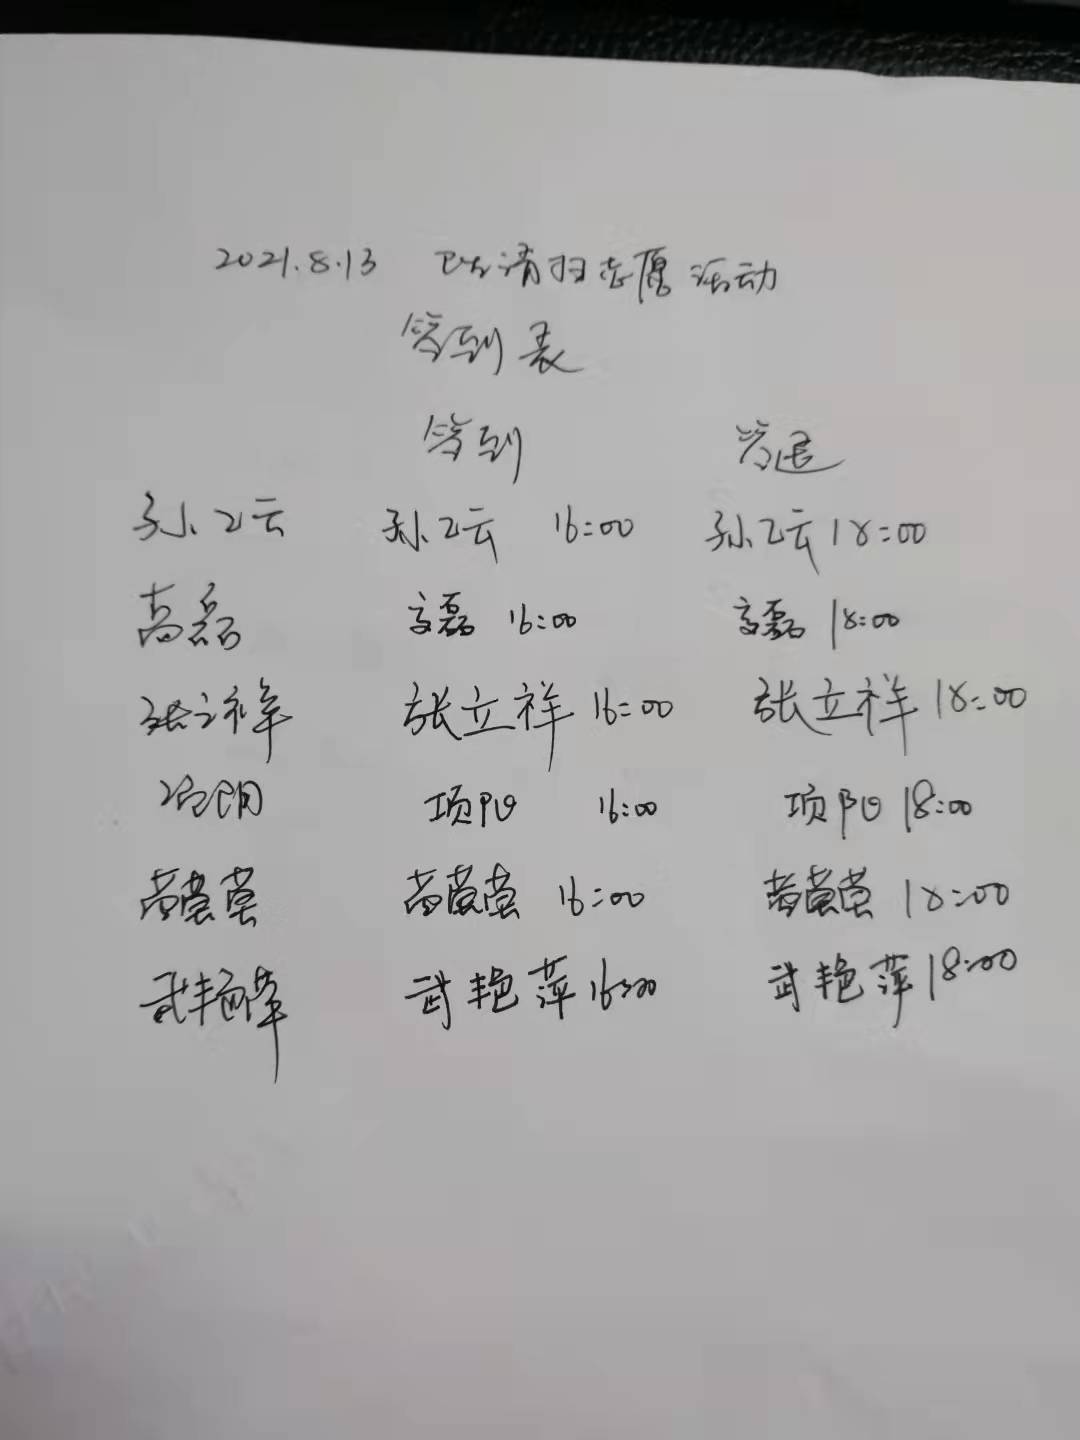 2021.8.13 卫生清扫志愿活动
签到表
签到 签退
孙卫云 孙卫云 16:00 孙卫云 18:00
高磊 高磊 16:00 高磊 18:00
张立祥 张立祥 16:00 张立祥 18:00
项阳 项阳 16:00 项阳 18:00
黄莹莹 黄莹莹 16:00 黄莹莹 18:00
武艳萍 武艳萍 16:00 武艳萍 18:00